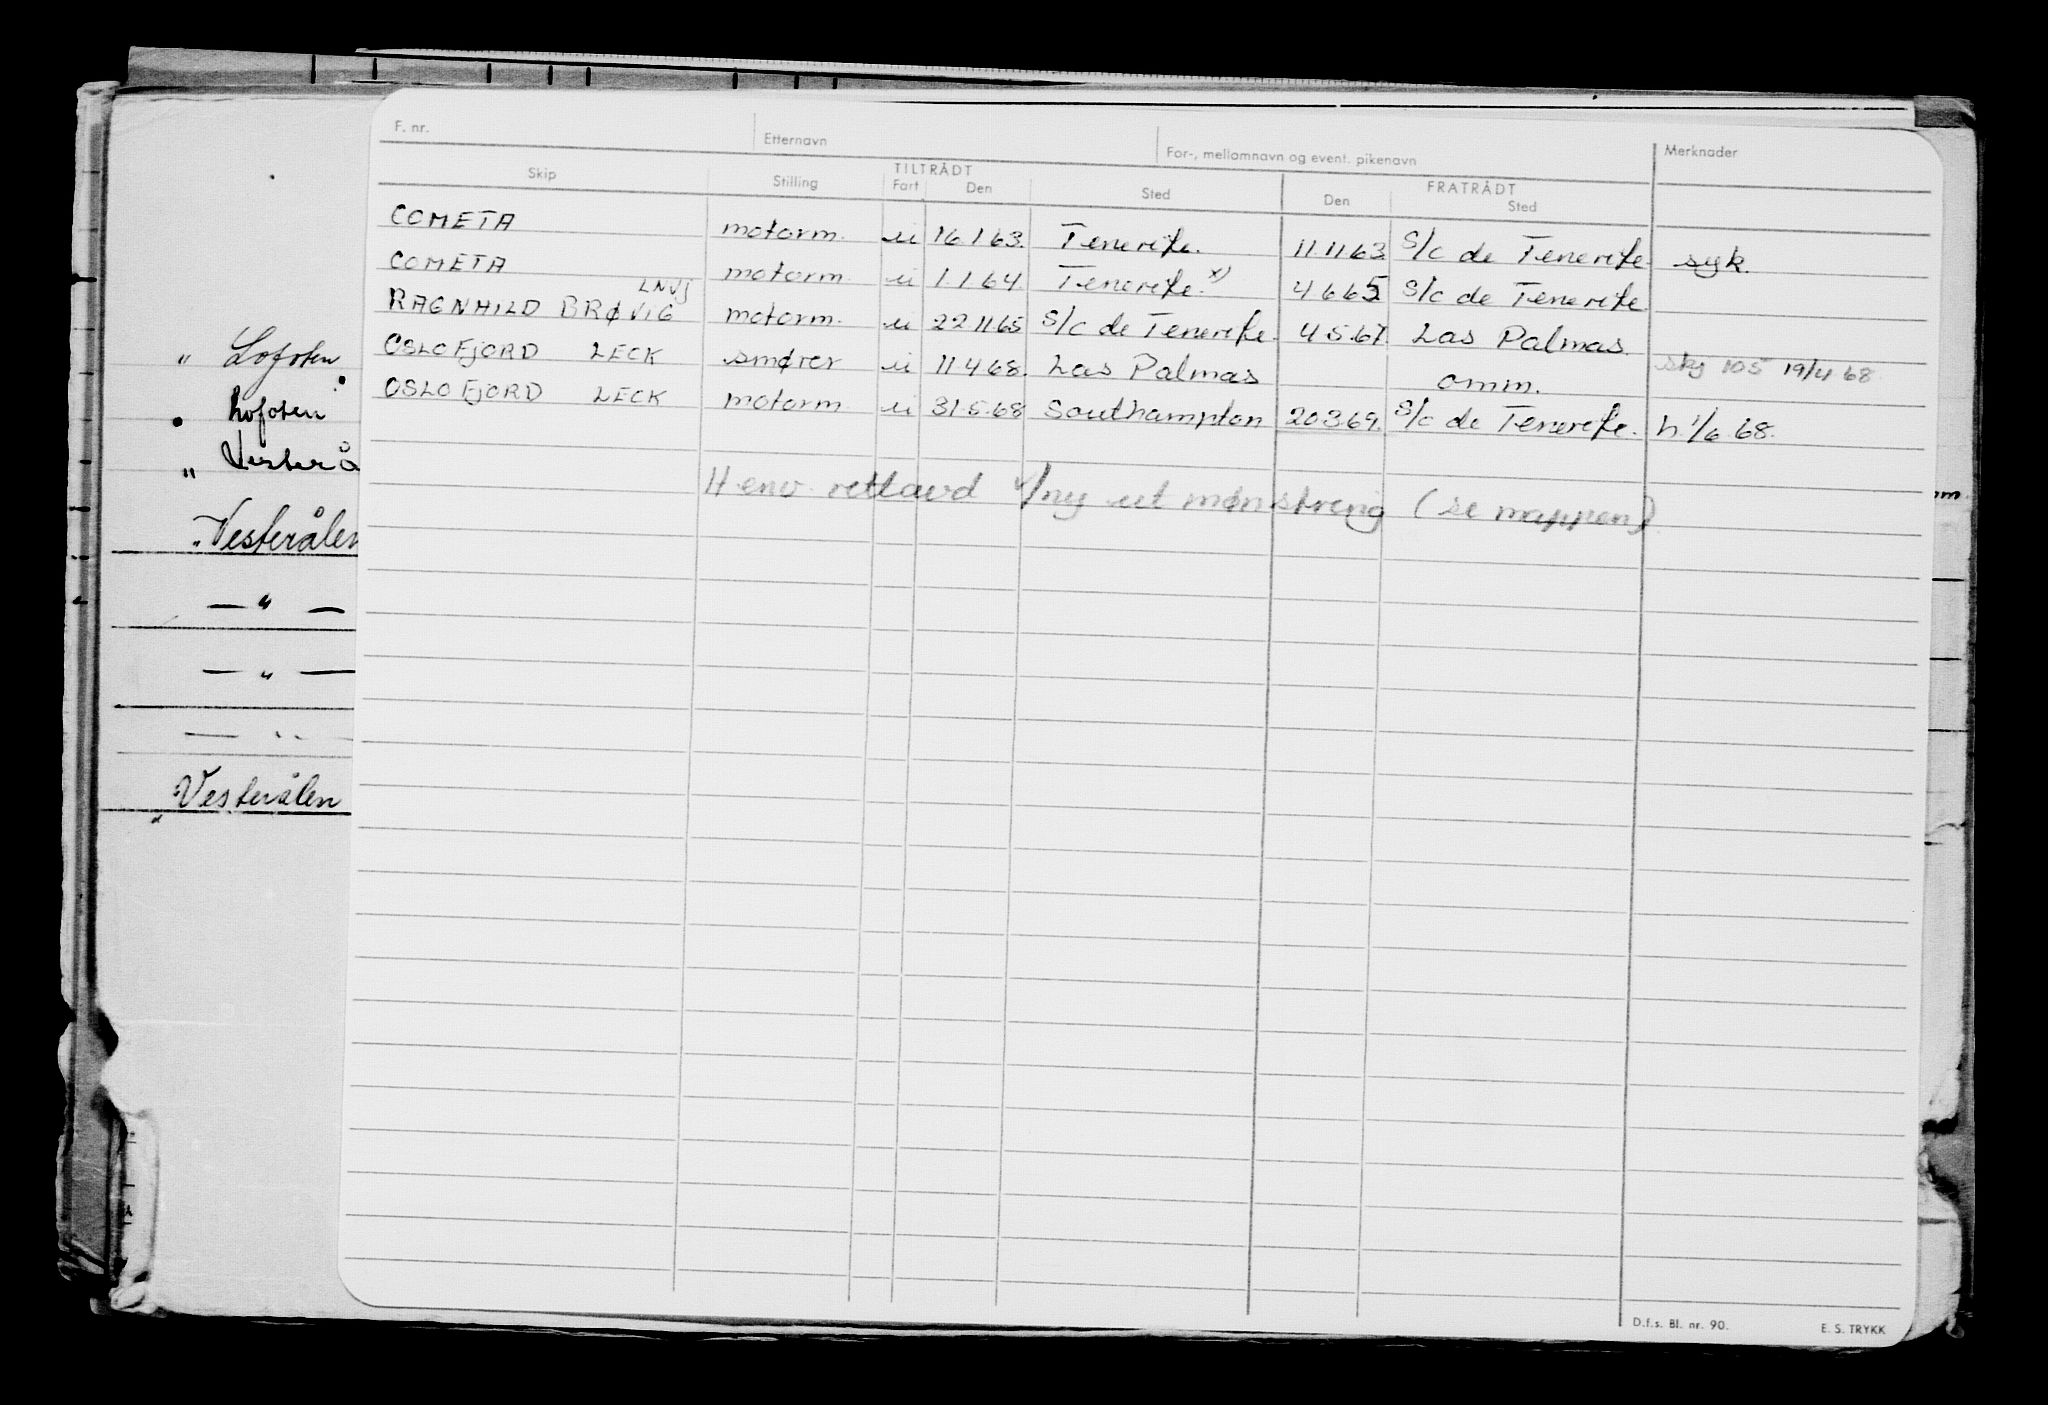 F. nr. Etternavn For-, mellomnavn og event. pikenavn Merknader
TILTRÅDT FRATRÅDT
Skip Stilling Fart Den Sted Den Sted
COMETA motorm. u 16.1.63. Tenerife. 11.11.63 S/c de Tenerife syk.
COMETA motorm. u 1.1.64. Tenerife. x) 4.6.65 S/c de Tenerife
LNVJ
RAGNHILD BRØVIG motorm. u 22.11.65 S/c de Tenerife. 4.5.67. Las Palmas.
OSLOFJORD LECK smører u 11.4.68. Las Palmas omm. skj 105 19/4 68
OSLOFJORD LECK motorm u 31.5.68 Southampton 20.3.69. S/c de Tenerife. h. 1/6 68.
H.env. retlavd v/ny ut mønstreing (se mappen).
" Lofoten
" Lofoten
" Vesterå
" Vesterålen
— " —
— " —
— " —
Vesterålen
"
D.f.s. Bl. nr. 90. E. S. TRYKK